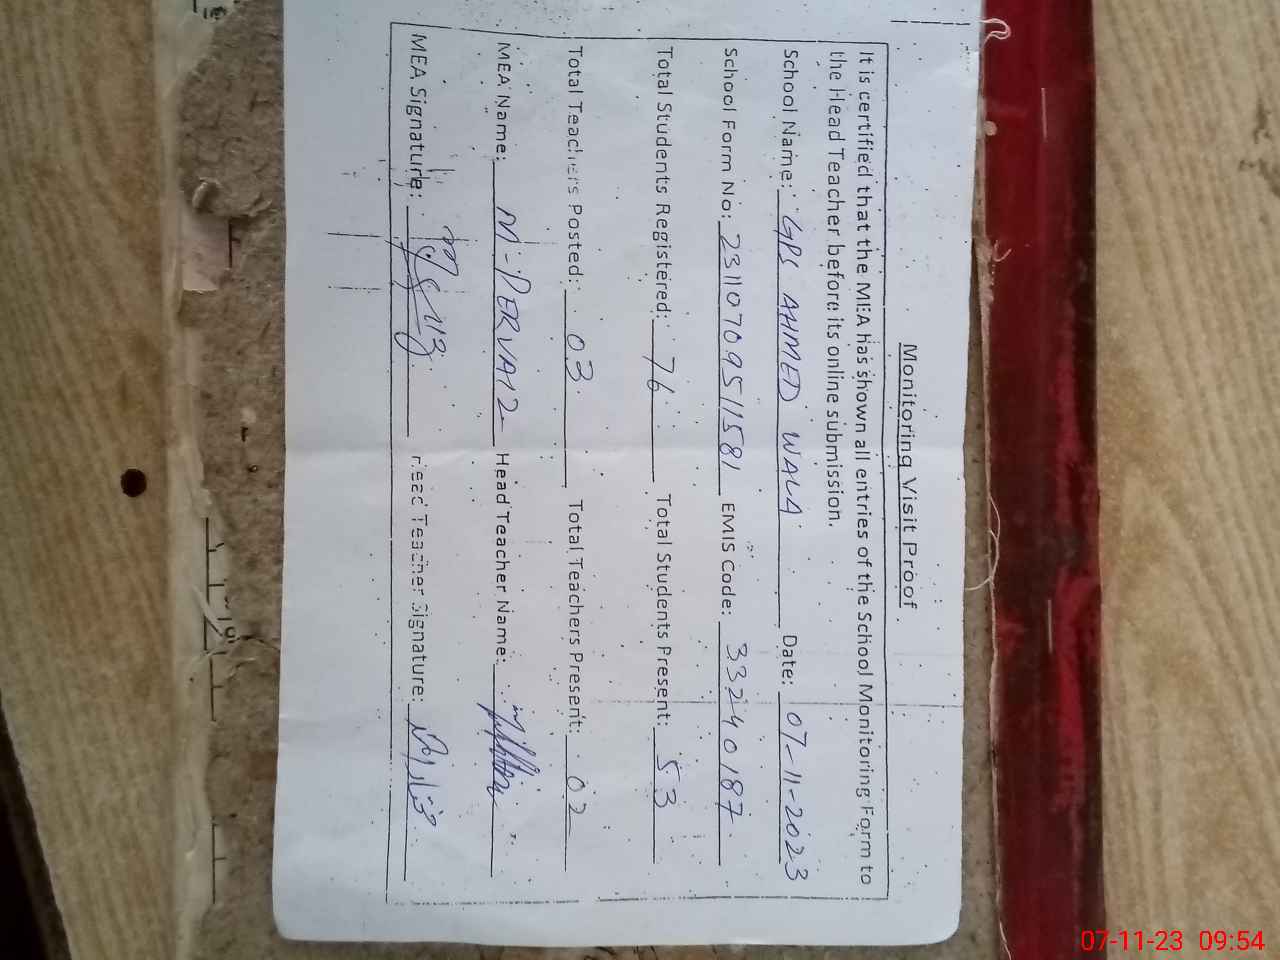 Monitoring Visit Proof
It is certified that the MEA has shown all entries of the School Monitoring Form to
the Head Teacher before its online submission.
School Name: GPS AHMED WALA Date: 07-11-2023
School Form No: 23110709511581 EMIS Code: 33240187
Total Students Registered: 76 Total Students Present: 53
Total Teachers Posted: 03 Total Teachers Present: 02
MEA Name: M-PERVAIZ Head Teacher Name:
MEA Signature: Head Teacher Signature:
07-11-23 09:54